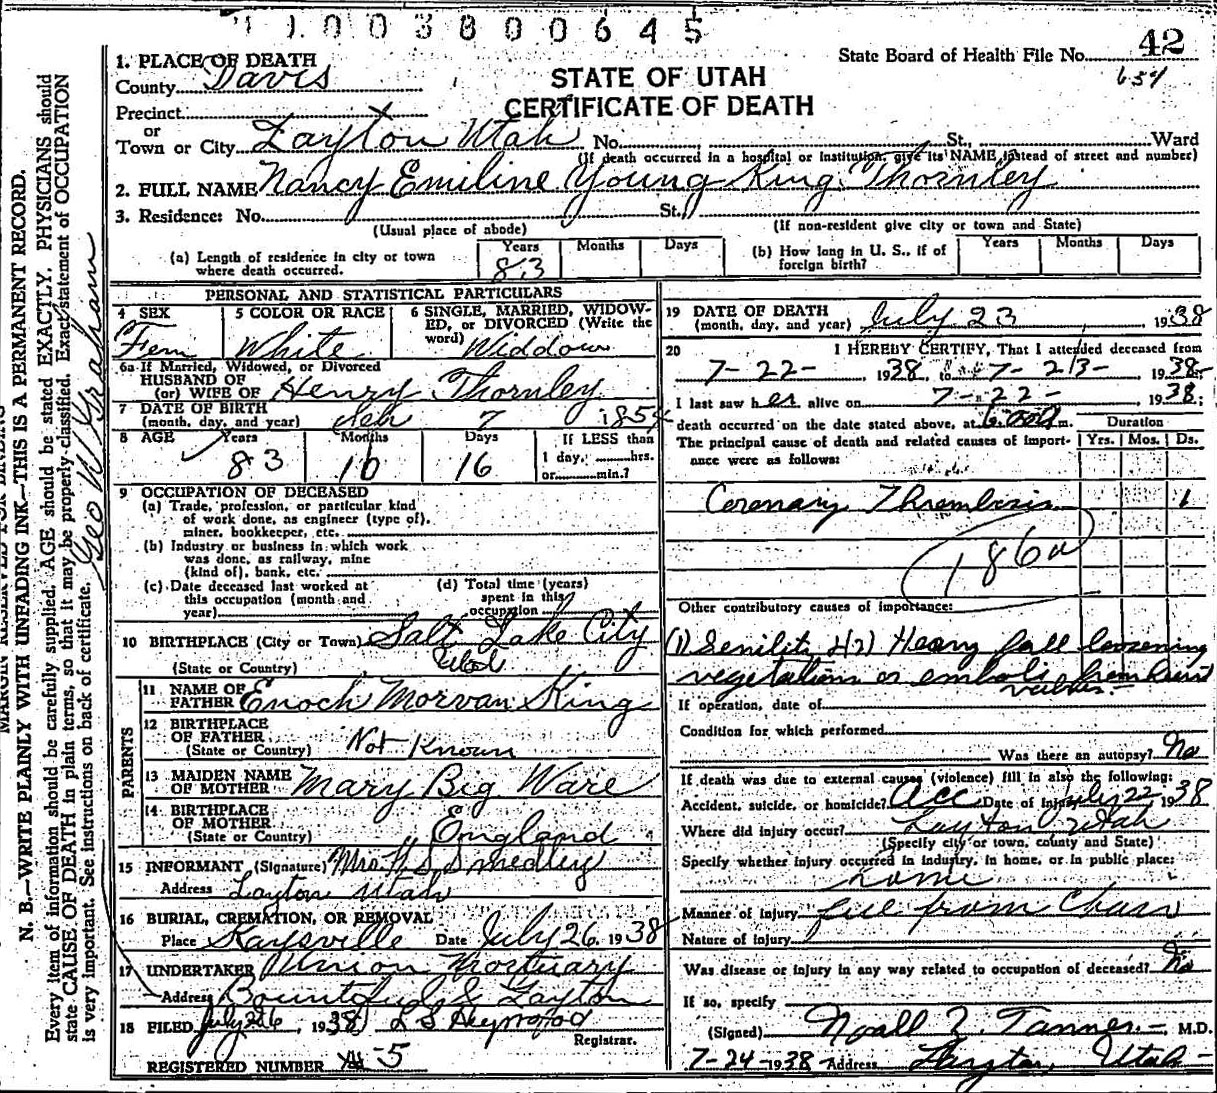 1 1 0 0 3 8 0 0 6 4 5
State Board of Health File No. 42
654
1. PLACE OF DEATH
County Davis
STATE OF UTAH
CERTIFICATE OF DEATH
Precinct
or
Town or City Layton Utah No. St., Ward
(If death occurred in a hospital or institution, give its NAME instead of street and number)
2. FULL NAME Nancy Emiline Young King Thornley
3. Residence: No. St.,
(Usual place of abode) (If non-resident give city or town and State)
(a) Length of residence in city or town where death occurred. Years 83 Months Days
(b) How long in U. S., if of foreign birth? Years Months Days
PERSONAL AND STATISTICAL PARTICULARS
4 SEX Fem
5 COLOR OR RACE White
6 SINGLE, MARRIED, WIDOWED, or DIVORCED (Write the word) Widdow
6a If Married, Widowed, or Divorced
HUSBAND OF
(or) WIFE OF Henry Thornley
7 DATE OF BIRTH
(month, day, and year) Seh 7 1854
8 AGE Years 83 Months 10 Days 16 If LESS than
1 day, hrs.
or min.?
9 OCCUPATION OF DECEASED
(a) Trade, profession, or particular kind
of work done, as engineer (type of),
miner, bookkeeper, etc.
(b) Industry or business in which work
was done, as railway, mine
(kind of), bank, etc.
(c) Date deceased last worked at
this occupation (month and
year)
(d) Total time (years)
spent in this
occupation
10 BIRTHPLACE (City or Town) Salt Lake City
(State or Country) Utah
PARENTS
11 NAME OF
FATHER Enoch Morvan King
12 BIRTHPLACE
OF FATHER
(State or Country) Not Known
13 MAIDEN NAME
OF MOTHER Mary Big Ware
14 BIRTHPLACE
OF MOTHER
(State or Country) England
15 INFORMANT (Signature) Mrs H S Smedley
Address Layton Utah
16 BURIAL, CREMATION, OR REMOVAL
Place Kaysville Date July 26, 1938
17 UNDERTAKER Union Mortuary
Address Bountiful & Layton
18 FILED July 26, 1938 L S Heywood
Registrar.
REGISTERED NUMBER 5
19 DATE OF DEATH
(month, day, and year) July 23 1938
20 I HEREBY CERTIFY, That I attended deceased from
7-22- 1938, to 7-23- 1938
I last saw her alive on 7-22- 1938;
death occurred on the date stated above, at m.
The principal cause of death and related causes of importance were as follows:
Duration
Yrs. Mos. Ds.
Coronary Thrombosis 1
186a
Other contributory causes of importance:
(1) Senility &(2) Heavy fall loosening
vegetations or emboli from heart
valves.-
If operation, date of
Condition for which performed
Was there an autopsy? No
If death was due to external causes (violence) fill in also the following:
Accident, suicide, or homicide? Acc Date of Injury July 22 1938
Where did injury occur? Layton Utah
(Specify city or town, county and State)
Specify whether injury occurred in industry, in home, or in public place:
home
Manner of Injury fell from Chair
Nature of injury
Was disease or injury in any way related to occupation of deceased? No
If so, specify
(Signed) Noall Z. Tanner - M.D.
7-24-1938 Address Layton, Utah-
MARGIN RESERVED FOR BINDING
N. B.—WRITE PLAINLY WITH UNFADING INK—THIS IS A PERMANENT RECORD.
Every item of information should be carefully supplied. AGE should be stated EXACTLY. PHYSICIANS should
state CAUSE OF DEATH in plain terms, so that it may be properly classified. Exact statement of OCCUPATION
is very important. See instructions on back of certificate.
Geo W Graham